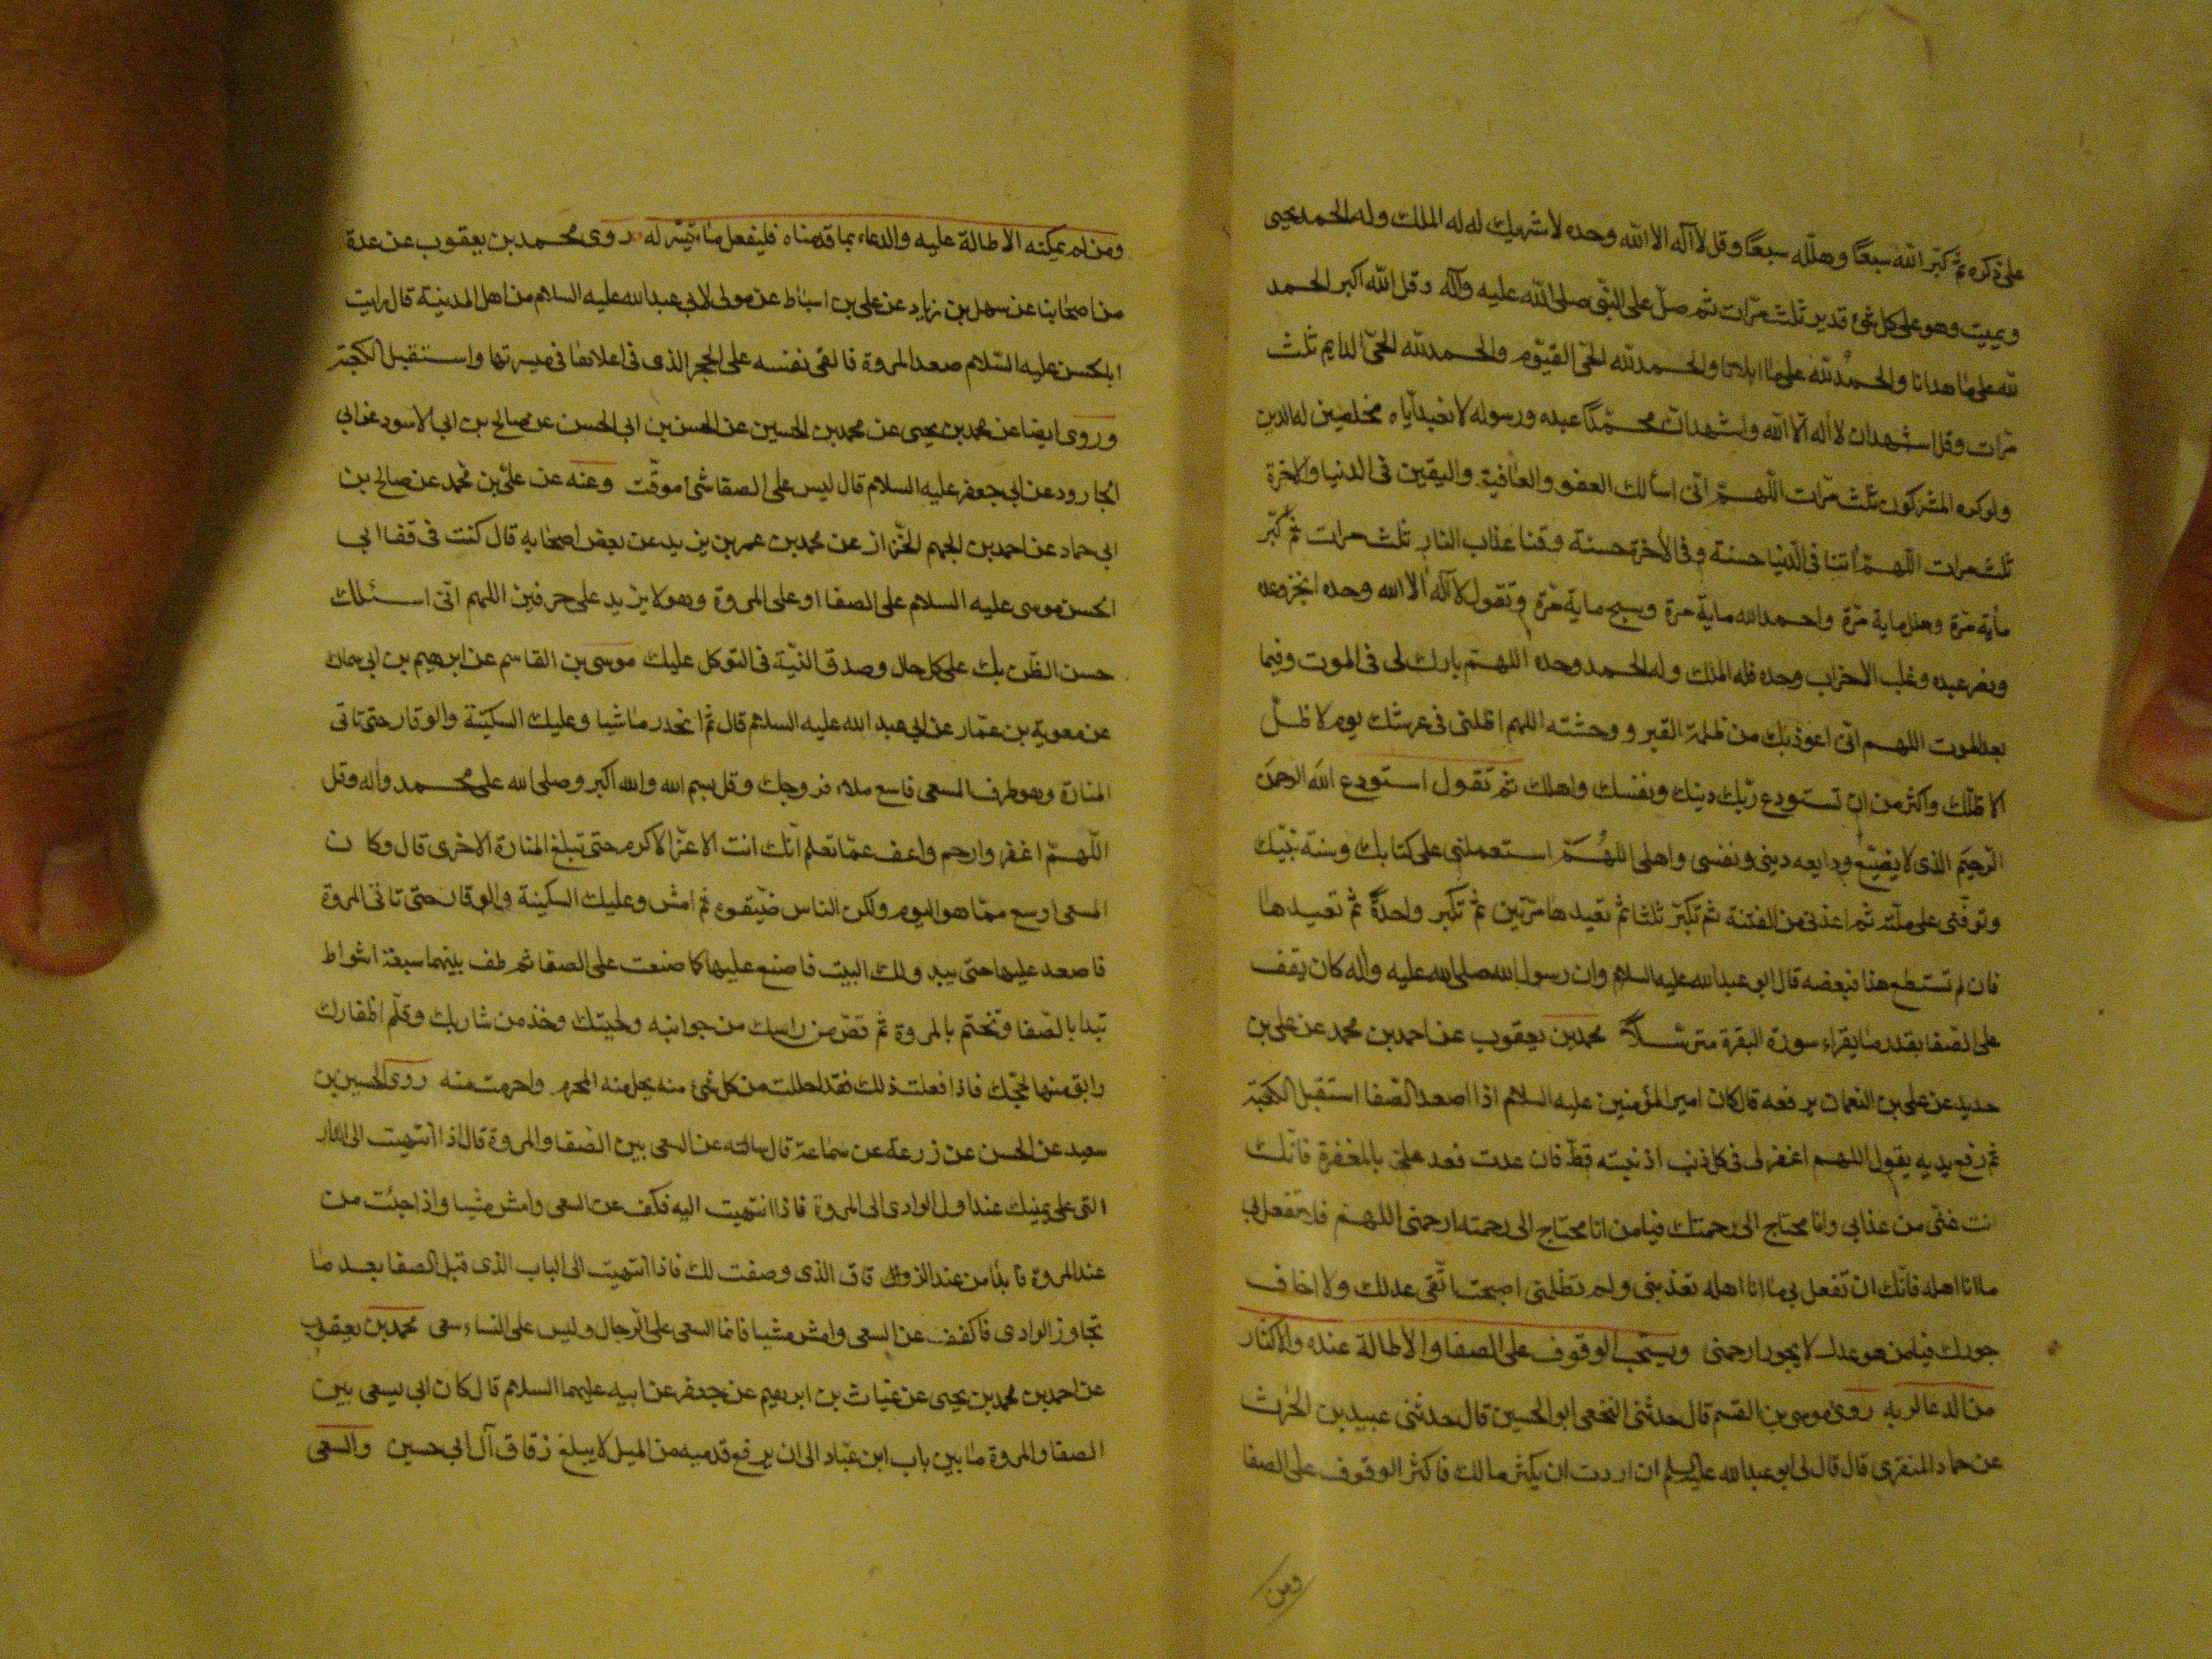 على ذكره ثم كبّر الله سبعًا وهلّله سبعًا وقل لا اله الا الله وحده لا شريك له له الملك وله الحمد يحيى
ويميت وهو على كل شئ قدير ثلث مرّات ثم صلّ على النبّى صلى الله عليه وآله وقل الله اكبر الحمد
لله على ما هدانا والحمُد لله على ما ابلانا والحمد لله الحىّ القيّوم والحمد لله الحىّ الدايم ثلث
مرّات وقل اشهد ان لا اله الّا الله واشهد انّ محمّدًا عبده ورسوله لا نعبد الّا اياه مخلصين له الدين
ولو كره المشركون ثلث مرّات اللّهمّ انّى اسألك العفو والعافية واليقين فى الدنيا والاخرة
ثلث مرات اللّهمّ اتنا فى الدّنيا حسنة وفى الاخرة حسنة وقنا عذاب النار ثلث مرات ثم كبّر
مأية مرّة وهلل ماية مرّة واحمد الله ماية مرة وسبح ماية مرّة وتقول لا اله الا الله وحده انجز وعده
ونصر عبده وغلب الاحزاب وحده فله الملك وله الحمد وحده اللهمّ بارك لى فى الموت وفيما
بعد الموت اللهم انى اعوذ بك من ظلمة القبر ووحشته اللهم اظلنى فى عرشك يوم لا ظلّ
الا ظلّك واكثر من ان تستودع ربّك دينك ونفسك واهلك ثم تقول استودع الله الرحمن
الرّحيم الذى لا يضيّع ودايعه دينى ونفسى واهلى اللهُمّ استعملنى على كتابك وسنة نبّيك
وتوفّنى على ملّته ثم اعذنى من الفتنة ثم تكبّر ثلثا ثم تعيدها مرّتين ثم تكبر واحدةً ثم تعيدها
فان لم تستطع هذا فبعضه قال ابو عبد الله عليه السلام وان رسول الله صلى الله عليه وآله كان يقف
على الصّفا بقدر ما يقراء سورة البقرة مترسّلًا محمد بن يعقوب عن احمد بن محمد عن على بن
حديد عن على بن النعمان يرفعه قال كان امير المؤمنين عليه السلام اذا اصعد الصّفا استقبل الكعبة
ثم رفع يديه يقول اللهم اغفر لى فى كل ذنب اذنبته قطّ فان عدت فعد علىّ بالمغفرة فانّك
انت غنّى من عذابى وانا محتاج الى رحمتك فيا من انا محتاج الى رحمته ارحمنى اللهم فلا تفعل بى
ما انا اهله فانّك ان تفعل بى ما انا اهله تعذبنى ولم تظلمنى اصبحت اتّقى عدلك ولا اخاف
جورك فيا من هو عدل لا يجور ارحمنى ويستحب الوقوف على الصفا والاطالة عنده والاكثار
من الدعا لربه روى موسى بن القسم قال حدثنى النخعى ابو الحسين قال حدثنى عبيد بن الحرث
عن حماد المنقرى قال قال لى ابو عبد الله عليه السلم ان اردت ان يكثر مالك فاكثر الوقوف على الصفا
ومن
ومن لم يمكنه الاطالة عليه والدعاء بما قدمناه فليفعل ما تيّسر له روى محمد بن يعقوب عن عدة
من اصحابنا عن سهل بن زياد عن على بن اسباط عن مولى لابى عبد الله عليه السلام من اهل المدينة قال رايت
ابا الحسن عليه السّلام صعد المروة فالقى نفسه على الحجر الذى فى اعلاها فى ميسرتها واستقبل الكعبة
وروى ايضا عن محمد بن يحيى عن محمد بن الحسين عن الحسن بن ابى الحسن عن صالح بن ابى الاسود عن ابى
الجارود عن ابى جعفر عليه السلام قال ليس على الصفا شئ موقّت وعنه عن علىّ بن محمد عن صالح بن
ابى حماد عن احمد بن الجهم الخّزاز عن محمد بن عمر بن يزيد عن بعض اصحابه قال كنت فى قفا ابى
الحسن موسى عليه السلام على الصفا او على المروة وهو لا يزيد على حرفين اللهم انّى اسئلك
حسن الظّن بك على كل حال وصدق النّية فى التوكل عليك موسى بن القاسم عن ابرهيم بن ابى سماك
عن معوية بن عمّار عن ابى عبد الله عليه السلام قال ثم انحدر ماشيا وعليك السكينة والوقار حتى تاتى
المنارة وهو طرف المسعى فاسع ملاء فروجك وقل بسم الله والله اكبر وصلى الله على محمد وآله وقل
اللّهمّ اغفر وارحم واعف عمّا تعلم انّك انت الاعزّ الاكرم حتى تبلغ المنارة الاخرى قال وكان
المسعى اوسع ممّا هو اليوم ولكن الناس ضّيقوه ثم امش وعليك السكينة والوقار حتى تاتى المروة
فاصعد عليها حتى يبدو لك البيت فاصنع عليها كما صنعت على الصفا ثم طف بينهما سبعة اشواط
تبدا بالصّفا وتختم بالمروة ثم تقصّر من راسك من جوانبه ولحيتك وخذ من شاربك وقلّم اظفارك
وابق منها لحجّك فاذا فعلت ذلك فقد احللت من كل شئ منه يحل منه المحرم واحرمت منه روى الحسين بن
سعيد عن الحسن عن زرعة عن سماعة قال سالته عن السعى بين الصّفا والمروة قال اذا انتهيت الى الدار
التى على يمينك عند اول الوادى الى المروة فاذا انتهيت اليه فكف عن السعى وامش مشيا واذا جئت من
عند المروة فابدا من عند الزقاق الذى وصفت لك فاذا انتهيت الى الباب الذى قبل الصفا بعد ما
تجاوز الوادى فاكفف عن السعى وامش مشيا فانما السعى على الّرجال وليس على النساء سعى محمد بن يعقوب
عن احمد بن محمد بن يحيى عن غياث بن ابرهيم عن جعفر عن ابيه عليهما السلام قال كان ابى يسعى بين
الصفا والمروة ما بين باب ابن عبّاد الى ان يرفع قدميه من الميل لا يبلغ زقاق آل ابى حسين والسعى